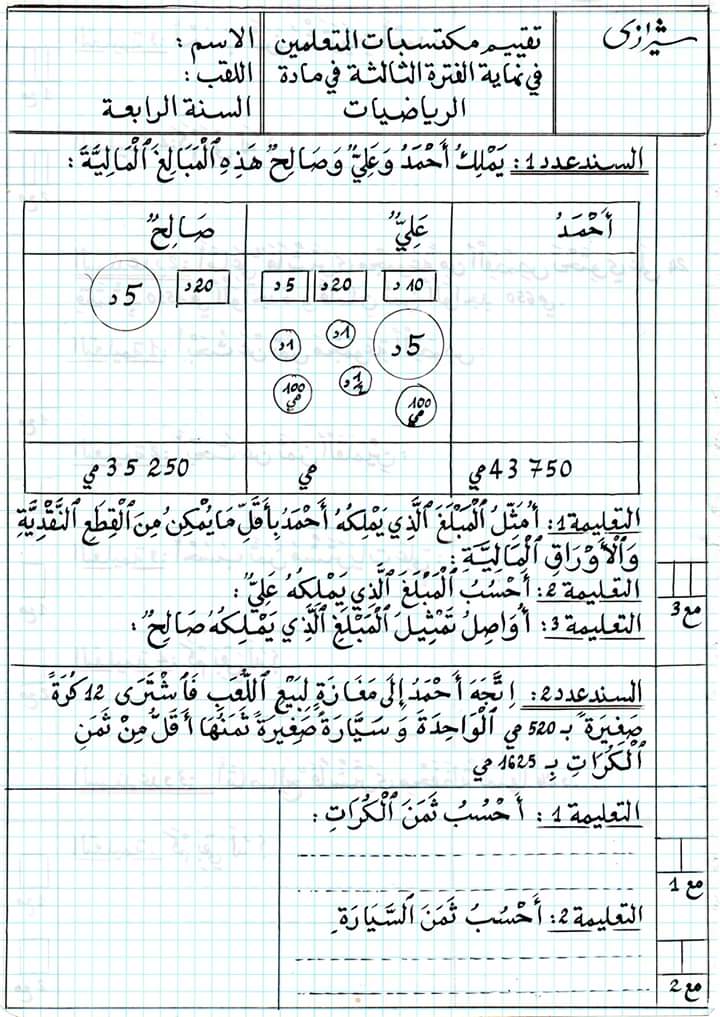 شيرازي
تقييم مكتسبات المتعلمين
في نهاية الفترة الثالثة في مادة
الرياضيات
الاسم :
اللقب :
السنة الرابعة
السند عدد 1 : يَمْلِكُ أَحْمَدُ وَعَلِيٌّ وَصَالِحٌ هَذِهِ ٱلْمَبَالِغَ ٱلْمَالِيَّةَ :
أَحْمَدُ
عَلِيٌّ
صَالِحٌ
10 د
20 د
5 د
5 د
1 د
1 د
1/2 د
100 مي
100 مي
20 د
5 د
43 750 مي
مي
35 250 مي
التعليمة 1 : أُمَثِّلُ ٱلْمَبْلَغَ ٱلَّذِي يَمْلِكُهُ أَحْمَدُ بِأَقَلِّ مَا يُمْكِنُ مِنَ ٱلْقِطَعِ ٱلنَّقْدِيَّةِ
وَٱلْأَوْرَاقِ ٱلْمَالِيَّةِ :
التعليمة 2 : أَحْسُبُ ٱلْمَبْلَغَ ٱلَّذِي يَمْلِكُهُ عَلِيٌّ :
التعليمة 3 : أُوَاصِلُ تَمْثِيلَ ٱلْمَبْلَغِ ٱلَّذِي يَمْلِكُهُ صَالِحٌ :
مع 3
السند عدد 2 : اِتَّجَهَ أَحْمَدُ إِلَى مَغَازَةٍ لِبَيْعِ ٱللُّعَبِ فَٱشْتَرَى 12 كُرَةً
صَغِيرَةً بـ 520 مي ٱلْوَاحِدَةَ وَ سَيَّارَةً صَغِيرَةً ثَمَنُهَا أَقَلُّ مِنْ ثَمَنِ
ٱلْكُرَاتِ بِـ 1625 مي
التعليمة 1 : أَحْسُبُ ثَمَنَ ٱلْكُرَاتِ :
مع 1
التعليمة 2 : أَحْسُبُ ثَمَنَ ٱلسَّيَّارَةِ
مع 2